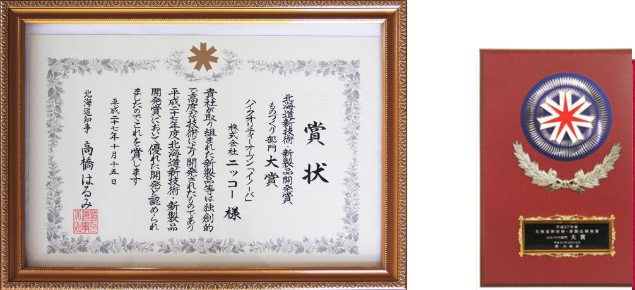 賞状
北海道新技術・新製品開発賞
ものづくり部門 大賞
株式会社ニッコー 様
貴社が取り組まれた新製品等は独創的
で高度な技術により開発されたものであり
平成二十七年度北海道新技術・新製品
開発賞において優れた開発と認められ
ましたのでこれを賞します
平成二十七年十月十五日
北海道知事 高橋はるみ
平成27年度
北海道新技術・新製品開発賞
ものづくり部門 大賞